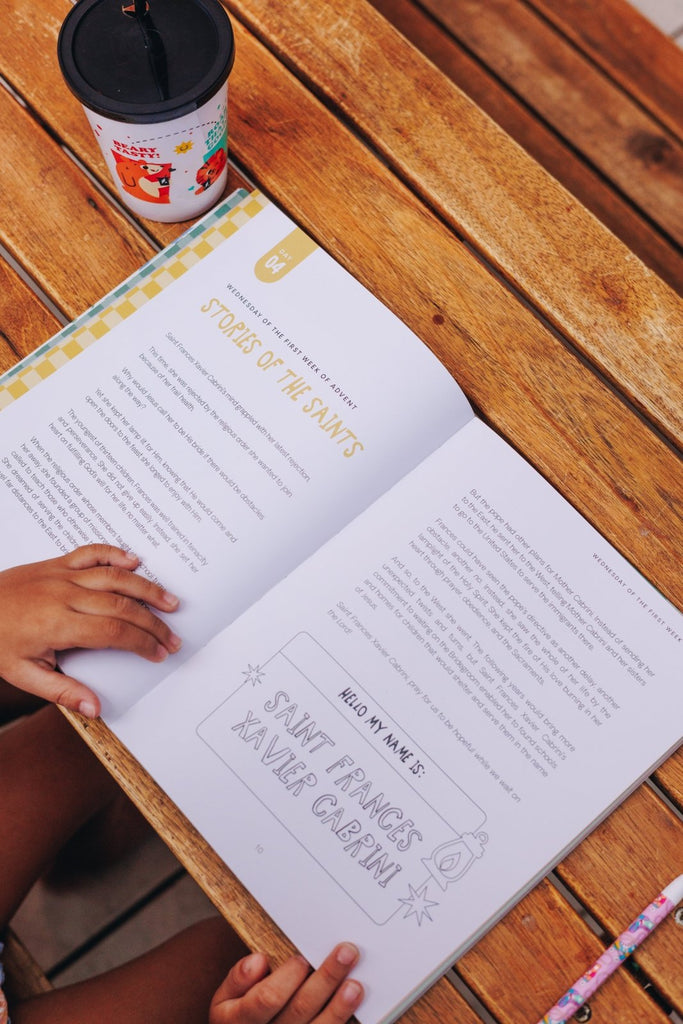 BEARY
TASTY!
DAY
04
WEDNESDAY OF THE FIRST WEEK OF ADVENT
STORIES OF THE SAINTS
Saint Frances Xavier Cabrini's mind grappled with her latest rejection.
This time, she was rejected by the religious order she wanted to join
because of her frail health.
Why would Jesus call her to be His bride if there would be obstacles
along the way?
Yet she kept her lamp lit for Him, knowing that He would come and
open the doors to the feast she longed to enjoy with Him.
The youngest of thirteen children, Frances was well trained in tenacity
and perseverance. She did not give up easily. Instead, she set her
heart on fulfilling God's will for her life no matter what.
When the religious order whose members taught
her away, she founded a group of missionary
called to teach those who otherwise
She dreamed of serving the
far distances to the East to
WEDNESDAY OF THE FIRST WEEK
But the pope had other plans for Mother Cabrini. Instead of sending her
to the East, he sent her to the West, telling Mother Cabrini and her sisters
to go to the United States to serve the immigrants there.
Frances could have seen the pope's directive as another delay, another
obstacle, another no. Instead, she saw the whole of her life by the
lamplight of the Holy Spirit. She kept the fire of His love burning in her
heart through prayer, obedience, and the Sacraments.
And so, to the West she went. The following years would bring more
unexpected twists and turns. But Saint Frances Xavier Cabrini's
commitment to waiting on the Bridegroom enabled her to found schools
and homes for children that would shelter and serve them in the name
of Jesus.
Saint Frances Xavier Cabrini, pray for us to be hopeful while we wait on
the Lord!
HELLO MY NAME IS:
SAINT FRANCES
XAVIER CABRINI
10